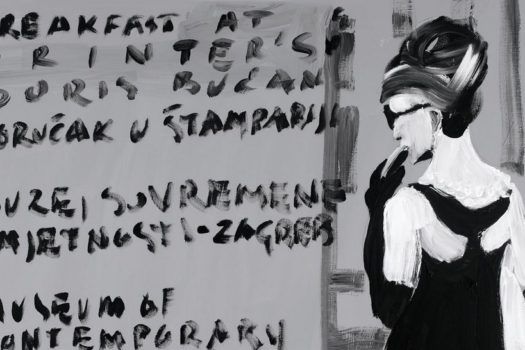 REAKFAST AT
RINTER'S
ORIS BUĆAN
ORUČAK U ŠTAMPARIJI
UZEJ SOVREMENE
MJETNOSTI-ZAGREB
MUSEUM OF
ONTEMPORARY